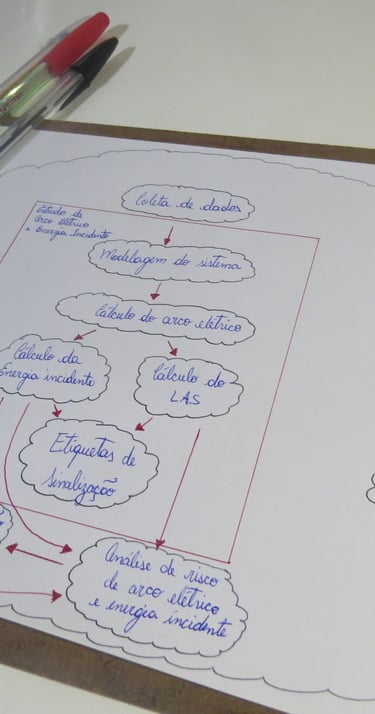 Coleta de dados
Estudo de
Arco Elétrico
e Energia Incidente
Modelagem do sistema
Cálculo do arco elétrico
Cálculo da
Energia incidente
Cálculo do
LAS
Etiquetas de
sinalização
Análise de risco
de arco elétrico
e energia incidente